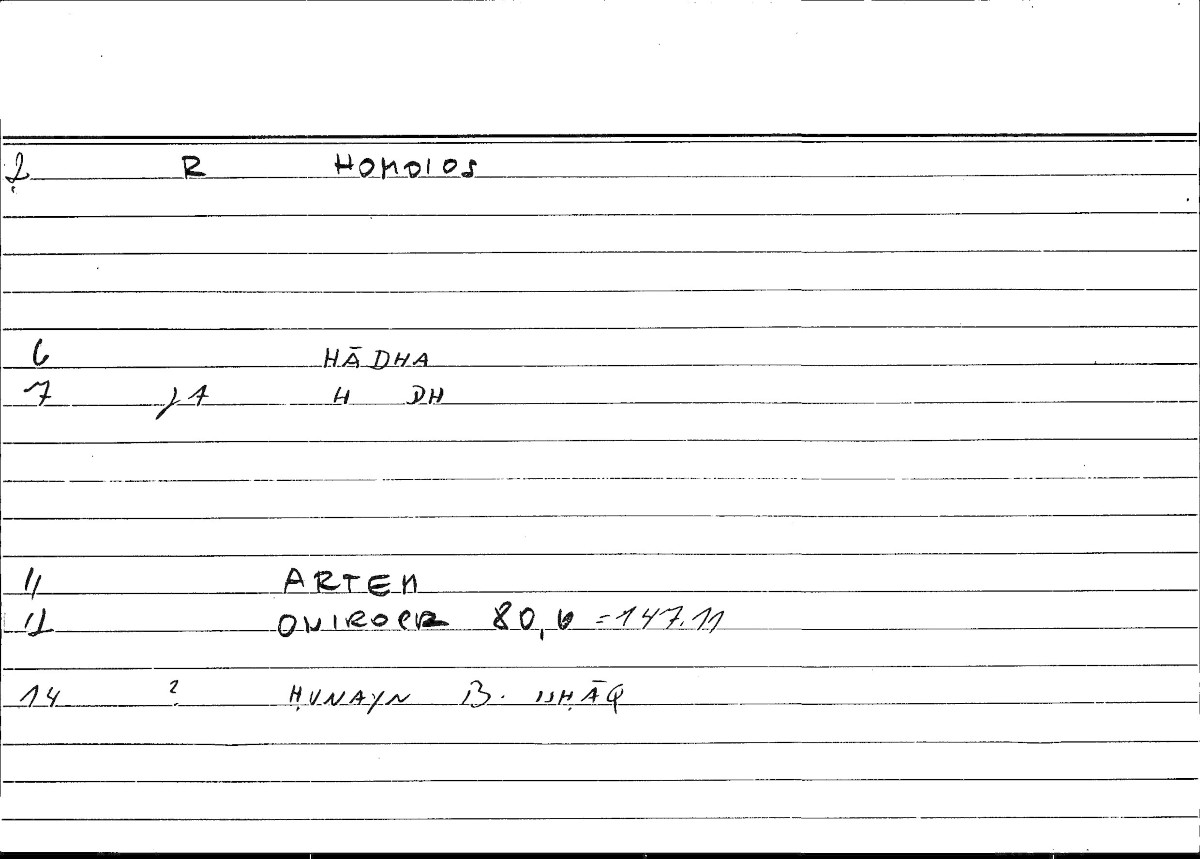 2 R HOMOIOS
6 HĀDHA
7 J1 H DH
11 ARTEM
12 ONIROCR 80,6 =147.11
14 ? ḤUNAYN B. ISḤĀQ